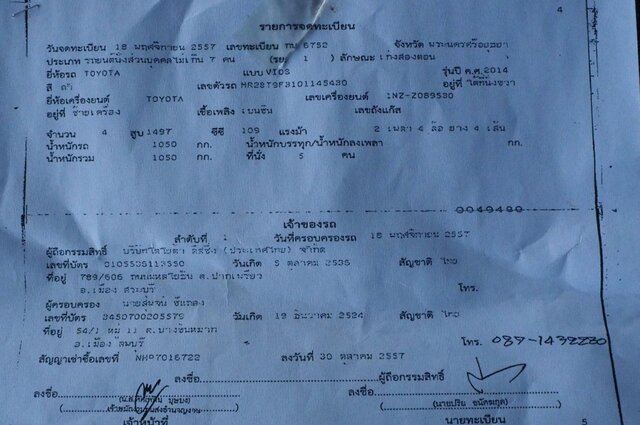 4
รายการจดทะเบียน
วันจดทะเบียน 18 พฤศจิกายน 2557 เลขทะเบียน กม 6752 จังหวัด พระนครศรีอยุธยา
ประเภท รถยนต์นั่งส่วนบุคคลไม่เกิน 7 คน (รย. 1 ) ลักษณะ เก๋งสองตอน
ยี่ห้อรถ TOYOTA แบบ VIOS รุ่นปี ค.ศ. 2014
สี เลขตัวรถ MR2BT9F3101145430 อยู่ที่ ใต้ที่นั่งขวา
ยี่ห้อเครื่องยนต์ TOYOTA เลขเครื่องยนต์ 1NZ-Z089530
อยู่ที่ ซ้ายเครื่อง เชื้อเพลิง เบนซิน เลขถังแก๊ส
จำนวน 4 สูบ 1497 ซีซี 109 แรงม้า 2 เพลา 4 ล้อ ยาง 4 เส้น
น้ำหนักรถ 1050 กก. น้ำหนักบรรทุก/น้ำหนักลงเพลา กก.
น้ำหนักรวม 1050 กก. ที่นั่ง 5 คน
0049480
เจ้าของรถ
ลำดับที่ วันที่ครอบครองรถ 18 พฤศจิกายน 2557
ผู้ถือกรรมสิทธิ์ บริษัทโตโยต้า ลีสซิ่ง (ประเทศไทย) จำกัด
เลขที่บัตร 0105536113550 วันเกิด 5 ตุลาคม 2536 สัญชาติ ไทย
ที่อยู่ 789/606 ถนนพหลโยธิน ต.ปากเพรียว
อ.เมือง สระบุรี โทร.
ผู้ครอบครอง
เลขที่บัตร 3450700205579 วันเกิด 19 ธันวาคม 2524 สัญชาติ ไทย
ที่อยู่ 54/1 หมู่ 11 ต.บางขันหมาก
อ.เมือง ลพบุรี โทร. 089-1432220
สัญญาเช่าซื้อเลขที่ NHP7016722 ลงวันที่ 30 ตุลาคม 2557
ลงชื่อ ผู้ถือกรรมสิทธิ์
ลงชื่อ ลงชื่อ
เจ้าพนักงานขนส่งชำนาญงาน
เจ้าหน้าที่ นายทะเบียน
5